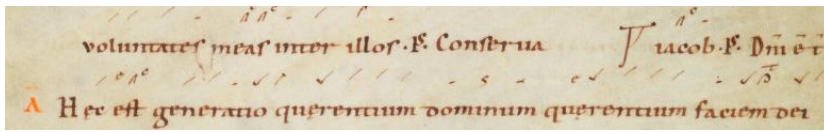 voluntates meas inter illos. Ps. Conserua T iacob. Ps. Dnī ē t
A Hec est generatio querentium dominum querentium faciem dei